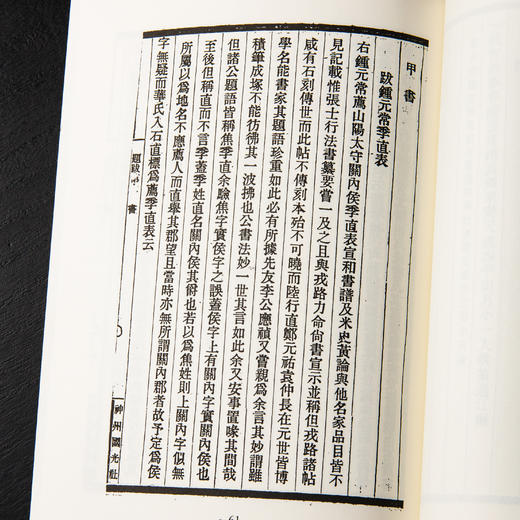 甲書
跋鍾元常季直表
右鍾元常薦山陽太守關內侯季直表宣和書譜及米史黃論與他名家品目皆不
見記載惟張士行法書纂要嘗一及之且與戎路力命尚書宣示並稱但戎路諸帖
咸有石刻傳世而此帖不傳刻本殆不可曉而陸行直鄭元祐袁仲長在元世皆博
學名能書家其題語珍重如此必有所據先友李公應禎又嘗親爲余言其妙謂雖
積筆成塚不能彷彿其一波拂也公書法妙一世其言如此余又安事置喙其間哉
但諸公題語皆稱焦季直余驗焦字實侯字之誤蓋侯字上有關內字實關內侯也
至後但稱直而不言季蓋季姓直名關內侯其爵也若以爲焦姓則上關內字似無
所屬以爲地名不應薦人而直舉其郡望且當時亦無所謂關內郡者故予定爲侯
字無疑而華氏入石直標爲薦季直表云
題跋
書
神州國光社
61